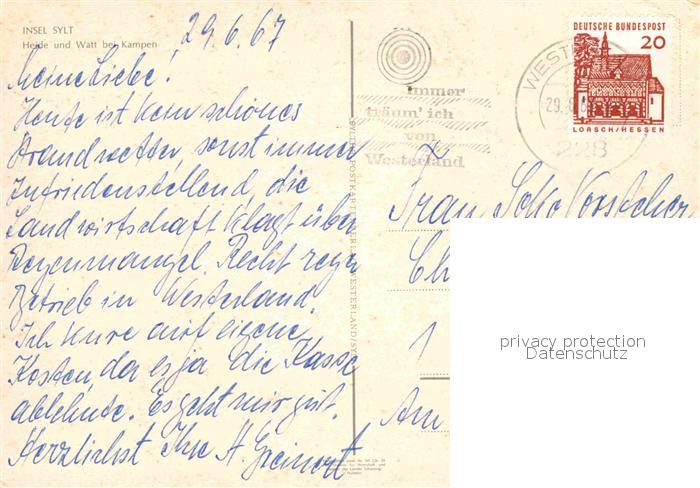 INSEL SYLT
Heide und Watt bei Kampen
29.6.67
Meine Liebe!
Heute ist kein schönes
Strandwetter, sonst immer
zufriedenstellend, die
Landwirtschaft klagt über
Regenmangel. Recht reger
Betrieb in Westerland.
Ich kure auf eigene
Kosten, da es ja die Kasse
ablehnte. Es geht mir gut.
Herzlichst Ihre H.
immer
träum' ich
von
Westerland
DEUTSCHE BUNDESPOST
20
LORSCH/HESSEN
WESTERL
29.6.
228
Frau
Ch
1
Am
privacy protection
Datenschutz